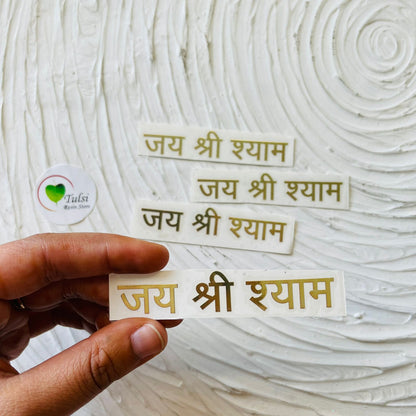 जय श्री श्याम
जय श्री श्याम
जय श्री श्याम
Tulsi
Resin Store
जय श्री श्याम